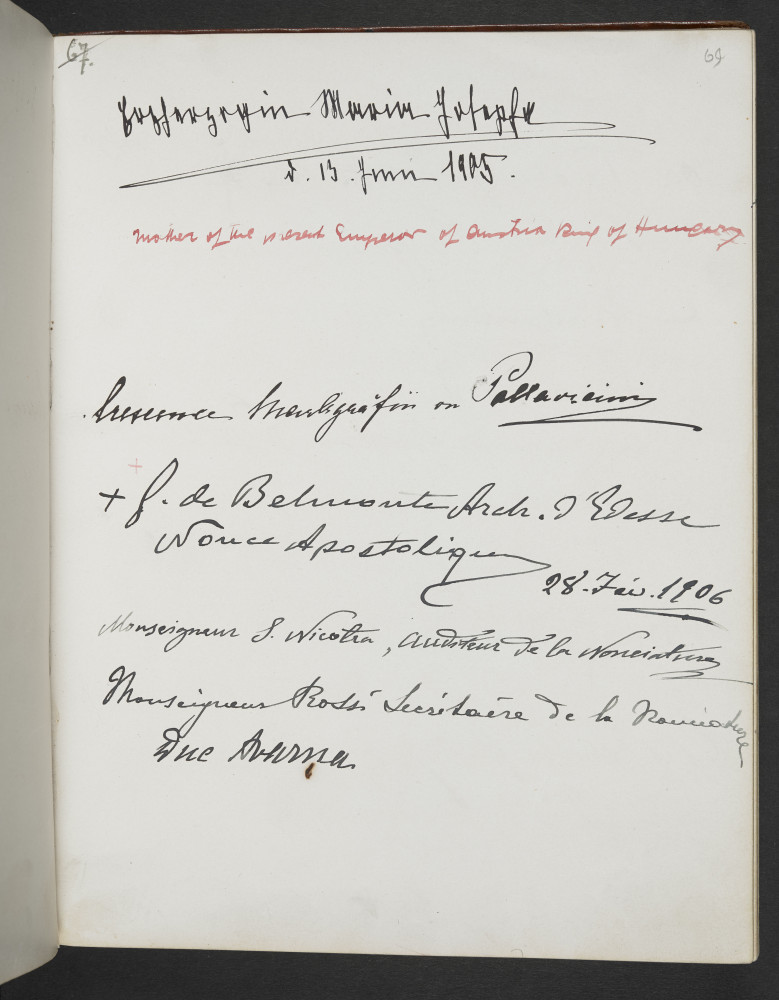 67.
69
Erzherzogin Maria Josepha
d. 13. Juni 1905.
mother of the present Emperor of Austria King of Hungary
Markgräfin Pallavicini
+
+ G. de Belmonte Arch. d'Edesse
Nonce Apostolique
28. Fév. 1906
Monseigneur S. Nicotra, auditeur de la Nonciature
Monseigneur Rossi Secrétaire de la Nonciature
Duc Avarna